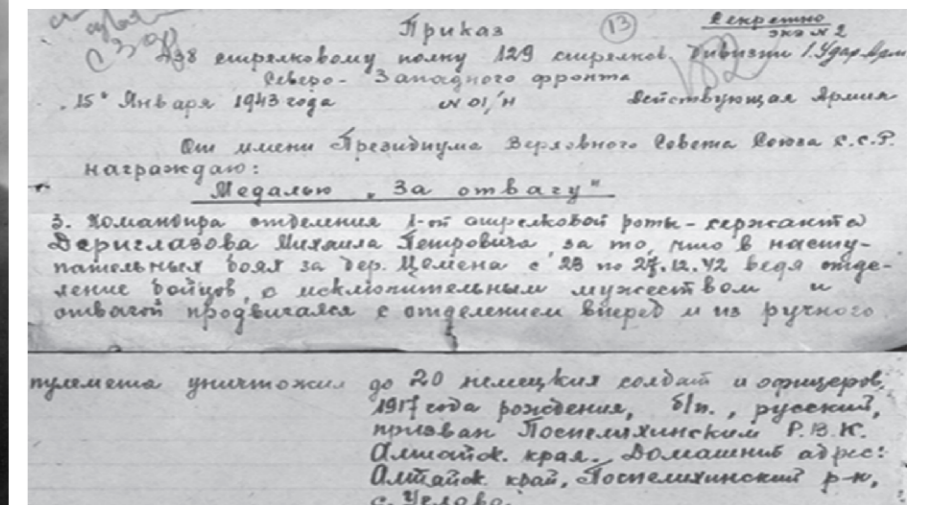 Приказ
(13)
Секретно
экз N 2
438 стрелковому полку 129 стрелков. дивизии 1. Удар. Арм
Северо-Западного фронта
"15" Января 1943 года N 01/н Действующая Армия
От имени Президиума Верховного Совета Союза С.С.Р.
награждаю:
Медалью "За отвагу"
3. Командира отделения 1-ой стрелковой роты - сержанта
Дериглазова Михаила Петровича за то, что в насту-
пательных боях за дер. Цемена с 23 по 27.12.42 ведя отде-
ление бойцов, с исключительным мужеством и
отвагой продвигался с отделением вперед и из ручного
пулемета уничтожил до 20 немецких солдат и офицеров,
1917 года рождения, б/п., русский,
призван Поспелихинским Р.В.К.
Алтайск. края. Домашний адрес:
Алтайск край, Поспелихинский р-н,